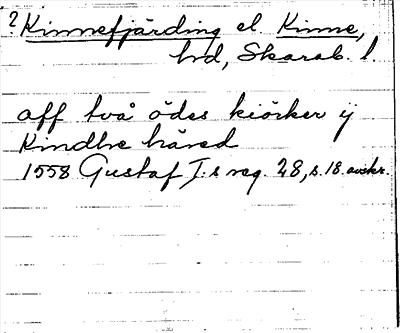 ? Kinnefjärding el Kinne,
hd, Skarab. l.
aff två ödes kiörker ÿ
Kindhe häred
1558 Gustaf I:s reg. 28, s. 18. avskr.